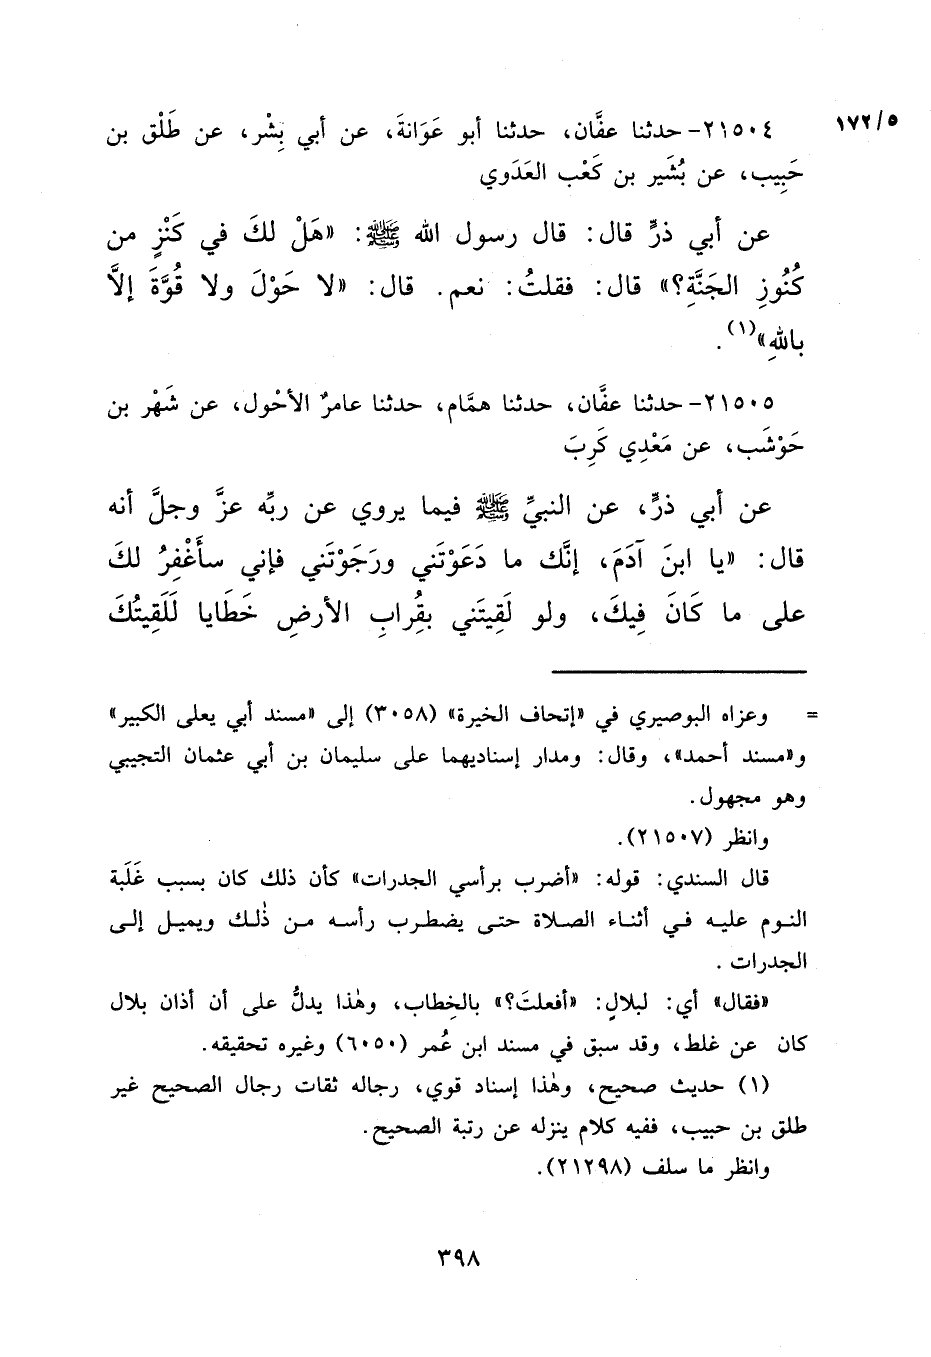 ١٧٢/٥
٢١٥٠٤- حدثنا عفَّان، حدثنا أبو عَوَانةَ، عن أبي بِشْر، عن طَلْق بن
حَبِيب، عن بُشَير بن كَعْب العَدَوي
عن أبي ذرٍّ قال: قال رسول الله ﷺ: «هَلْ لكَ في كَنْزٍ من
كُنُوزِ الجَنَّةِ؟» قال: فقلتُ: نعم. قال: «لا حَوْلَ ولا قُوَّةَ إلاَّ
باللهِ»(١).
٢١٥٠٥- حدثنا عفَّان، حدثنا همَّام، حدثنا عامرٌ الأحْول، عن شَهْر بن
حَوْشَب، عن مَعْدِي كَرِبَ
عن أبي ذرٍّ، عن النبيِّ ﷺ فيما يروي عن ربِّه عزَّ وجلَّ أنه
قال: «يا ابنَ آدَمَ، إنَّك ما دَعَوْتَني ورَجَوْتَني فإني سأَغْفِرُ لكَ
على ما كَانَ فِيكَ، ولو لَقِيتَني بقُرابِ الأرضِ خَطَايا لَلَقِيتُكَ
= وعزاه البوصيري في «إتحاف الخيرة» (٣٠٥٨) إلى «مسند أبي يعلى الكبير»
و«مسند أحمد»، وقال: ومدار إسناديهما على سليمان بن أبي عثمان التجيبي
وهو مجهول.
وانظر (٢١٥٠٧).
قال السندي: قوله: «أضرب برأسي الجدرات» كأن ذلك كان بسبب غَلَبة
النوم عليه في أثناء الصلاة حتى يضطرب رأسه من ذٰلك ويميل إلى
الجدرات.
«فقال» أي: لبلالٍ: «أفعلتَ؟» بالخِطاب، وهٰذا يدلُّ على أن أذان بلال
كان عن غلط، وقد سبق في مسند ابن عُمر (٦٠٥٠) وغيره تحقيقه.
(١) حديث صحيح، وهٰذا إسناد قوي، رجاله ثقات رجال الصحيح غير
طلق بن حبيب، ففيه كلام ينزله عن رتبة الصحيح.
وانظر ما سلف (٢١٢٩٨).
٣٩٨